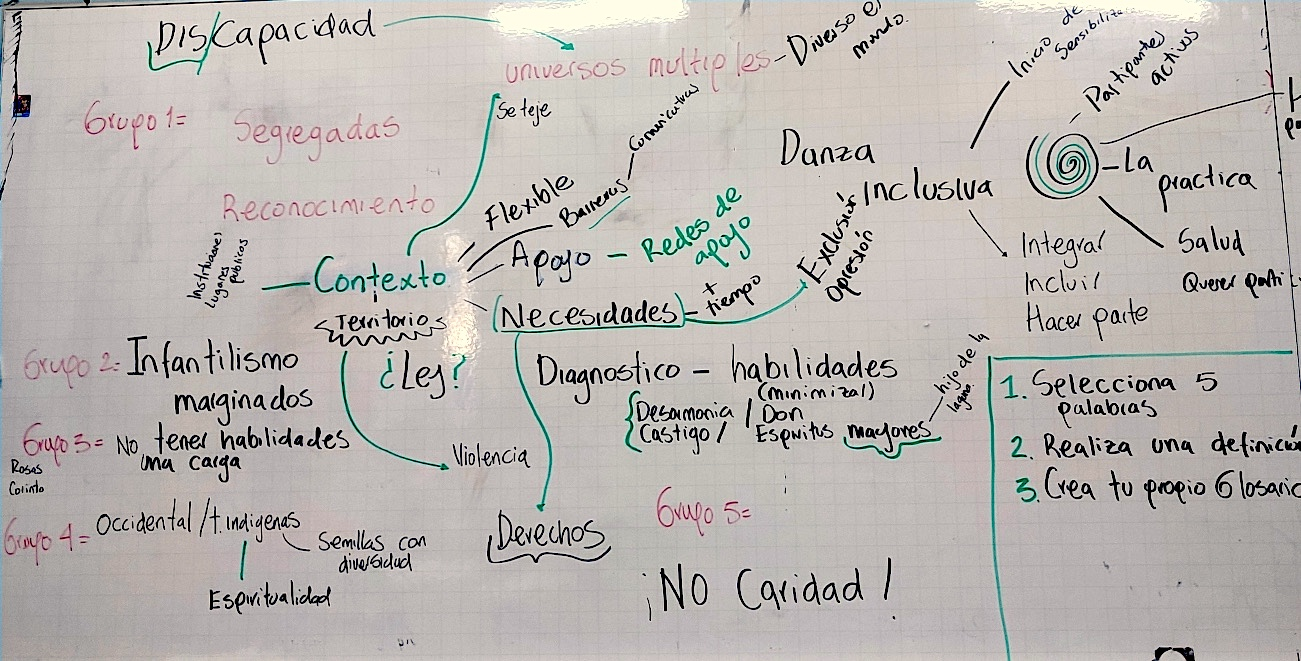 DIS/Capacidad
universos multiples - Diverso el
mundo.
Se teje
Grupo 1= Segregadas
Reconocimiento
Instituciones
Lugares
publicos
Contexto
Territorio
¿Ley?
Flexible
Barreras
Comunicativas
Apoyo - Redes de
apoyo
Necesidades - + tiempo
Exclusión
Opresión
Danza
Inclusiva
Inicio de
Partipantes
activos
La
practica
Salud
Querer parti
Integral
Incluir
Hacer parte
Grupo 2= Infantilismo
marginados
Grupo 3= No tener habilidades
una carga
Rosas
Corinto
Violencia
Diagnostico - habilidades
(minimizal)
Desarmonia / Don
Castigo / Espiritus mayores
hijo de la
laguna
Grupo 4= Occidental / t. indigenas
Semillas con
diversidad
Espiritualidad
Derechos
Grupo 5=
¡NO Caridad!
1. Selecciona 5
palabras
2. Realiza una definición
3. Crea tu propio Glosario